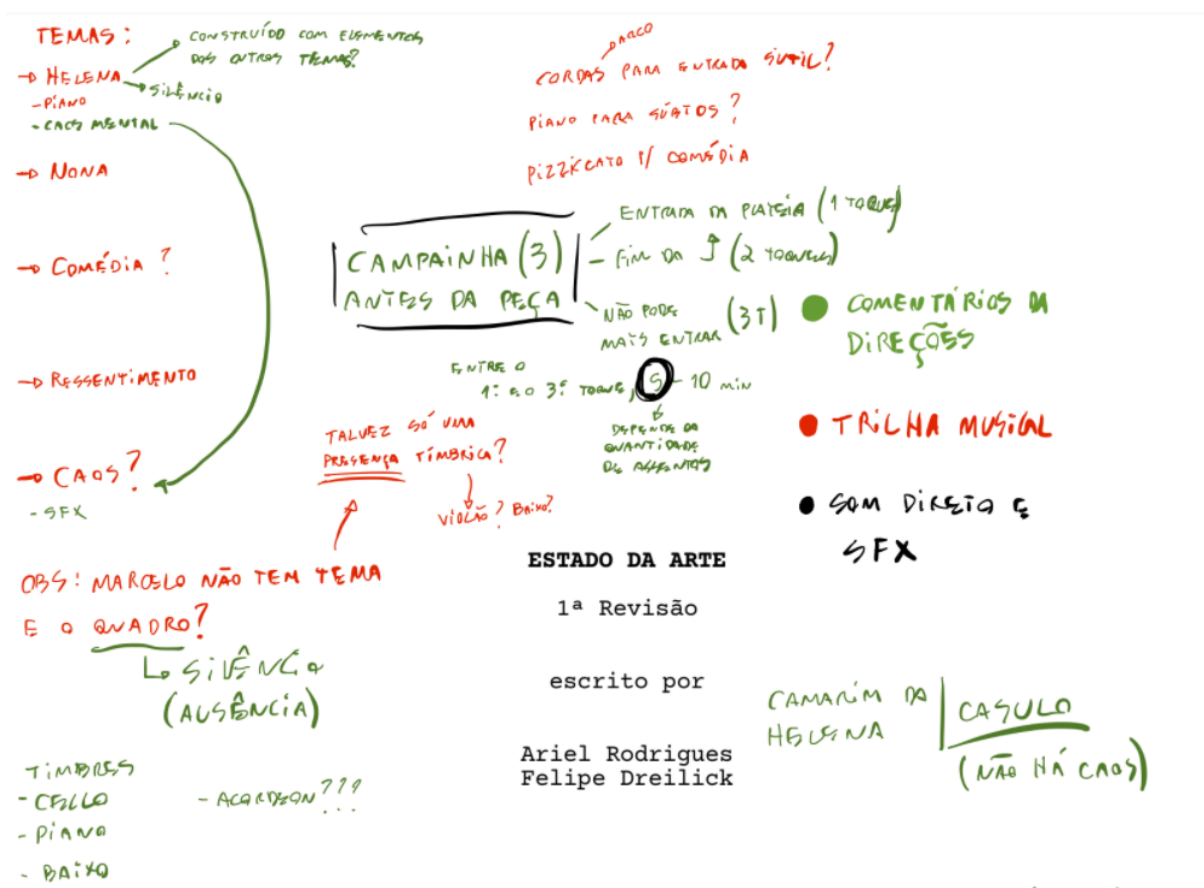 TEMAS:
→ HELENA
- PIANO
- CAOS MENTAL
CONSTRUÍDO COM ELEMENTOS
DOS OUTROS TEMAS?
SILÊNCIO
→ NONA
→ COMÉDIA?
→ RESSENTIMENTO
→ CAOS?
- SFX
OBS: MARCELO NÃO TEM TEMA
E O QUADRO?
SILÊNCIO
(AUSÊNCIA)
TALVEZ SÓ UMA
PRESENÇA TÍMBRICA?
VIOLÃO? BAIXO?
TIMBRES
- CELLO
- PIANO
- BAIXO
- ACORDEON???
...
ARCO
CORDAS PARA ENTRADA SUTIL?
PIANO PARA SÚBTOS?
PIZZICATO P/ COMÉDIA
CAMPAINHA (3)
ANTES DA PEÇA
ENTRADA DA PLATEIA (1 TOQUE)
- FIM DA ↑ (2 TOQUES)
NÃO PODE
MAIS ENTRAR (3T)
ENTRE O
1º E O 3º TOQUE, 5 - 10 min
DEPENDE DA
QUANTIDADE
DE ASSENTOS
● COMENTÁRIOS DA
DIREÇÕES
● TRILHA MUSICAL
● SOM DIRETO E
SFX
ESTADO DA ARTE
1ª Revisão
escrito por
Ariel Rodrigues
Felipe Dreilick
CAMARIM DA
HELENA
CASULO
(NÃO HÁ CAOS)